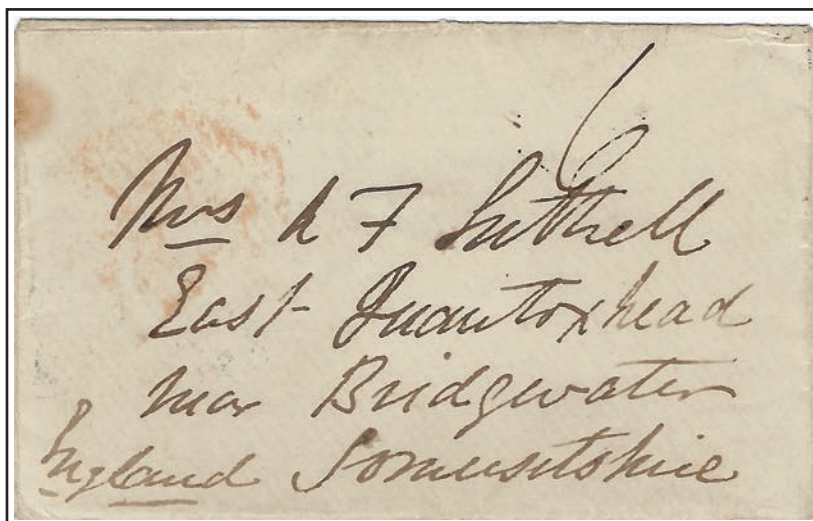 6
Mrs A F Luttrell
East Quantoxhead
near Bridgewater
England Somersetshire